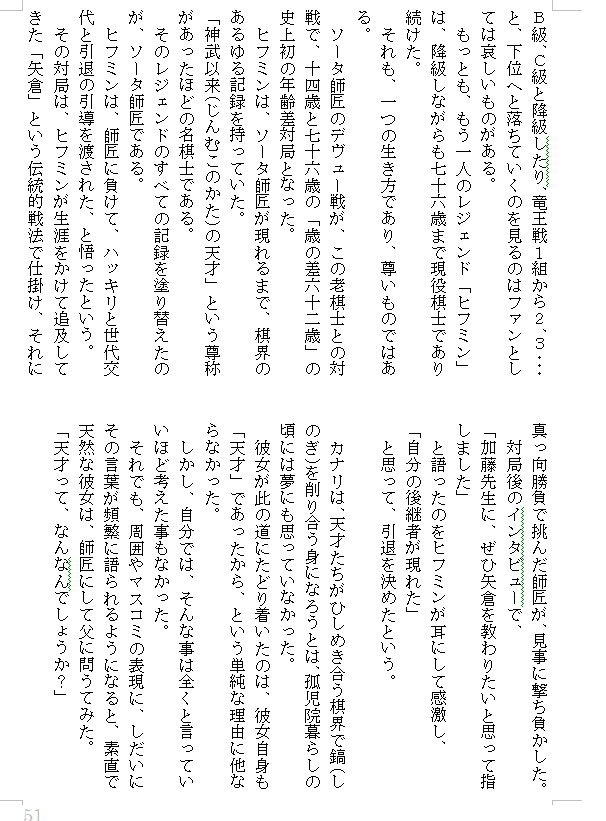 Ｂ級、Ｃ級と降級したり、竜王戦１組から２、３…
と、下位へと落ちていくのを見るのはファンとし
ては哀しいものがある。
もっとも、もう一人のレジェンド「ヒフミン」
は、降級しながらも七十六歳まで現役棋士であり
続けた。
それも、一つの生き方であり、尊いものではあ
る。
ソータ師匠のデヴュー戦が、この老棋士との対
戦で、十四歳と七十六歳の「歳の差六十二歳」の
史上初の年齢差対局となった。
ヒフミンは、ソータ師匠が現れるまで、棋界の
あるゆる記録を持っていた。
「神武以来(じんむこのかた)の天才」という尊称
があったほどの名棋士である。
そのレジェンドのすべての記録を塗り替えたの
が、ソータ師匠である。
ヒフミンは、師匠に負けて、ハッキリと世代交
代と引退の引導を渡された、と悟ったという。
その対局は、ヒフミンが生涯をかけて追及して
きた「矢倉」という伝統的戦法で仕掛け、それに
真っ向勝負で挑んだ師匠が、見事に撃ち負かした。
対局後のインタビューで、
「加藤先生に、ぜひ矢倉を教わりたいと思って指
しました」
と語ったのをヒフミンが耳にして感激し、
「自分の後継者が現れた」
と思って、引退を決めたという。
カナリは、天才たちがひしめき合う棋界で鎬(し
のぎ)を削り合う身になろうとは、孤児院暮らしの
頃には夢にも思っていなかった。
彼女が此の道にたどり着いたのは、彼女自身も
「天才」であったから、という単純な理由に他な
らなかった。
しかし、自分では、そんな事は全くと言ってい
いほど考えた事もなかった。
それでも、周囲やマスコミの表現に、しだいに
その言葉が頻繁に語られるようになると、素直で
天然な彼女は、師匠にして父に問うてみた。
「天才って、なんなんでしょうか？」
51